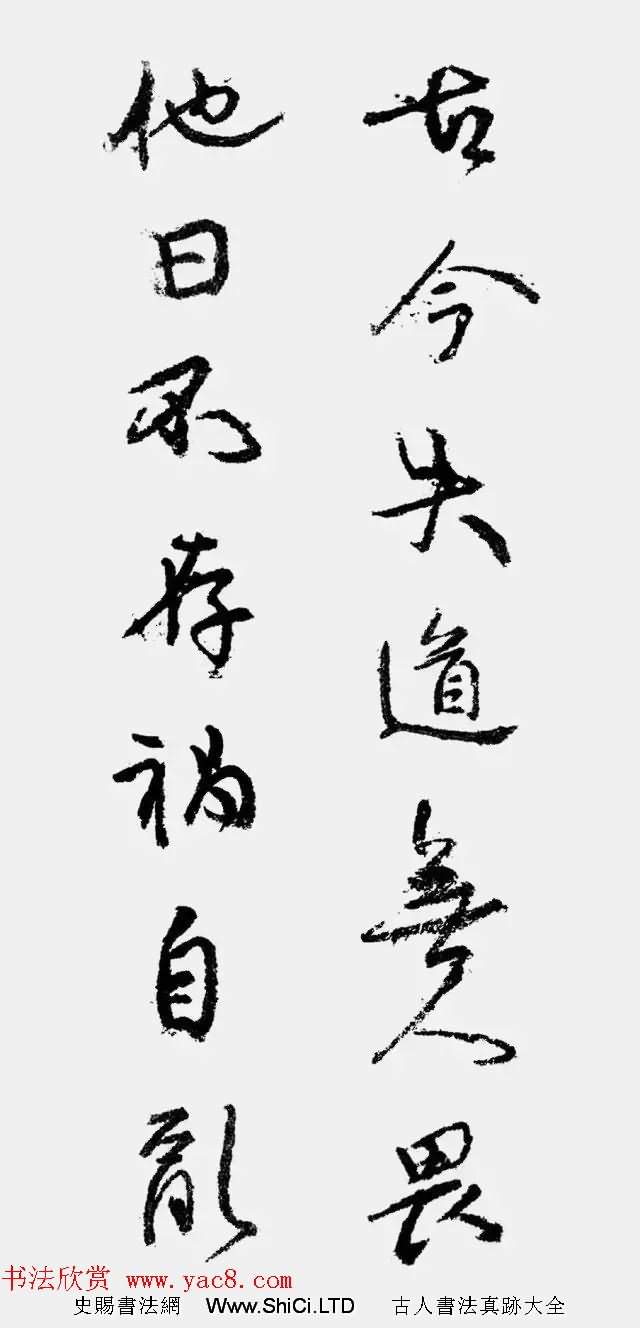 古今失道無人畏
他日存禍自亂
书法欣赏 www.yac8.com
史賜書法網 Www.ShiCi.LTD 古人書法真跡大全